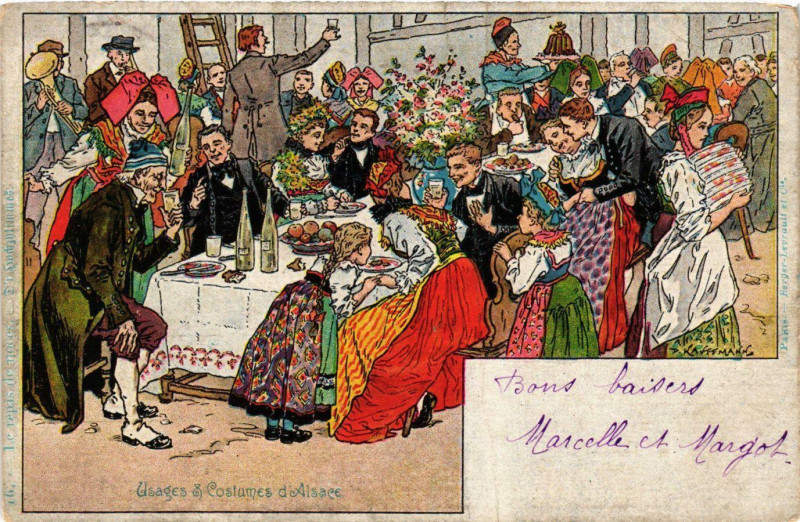 Usages & Costumes d'Alsace
16. — Le repas de noces.
Paris — Berger-Levrault et Cie.
KAUFFMANN
Bons baisers
Marcelle et Margot.